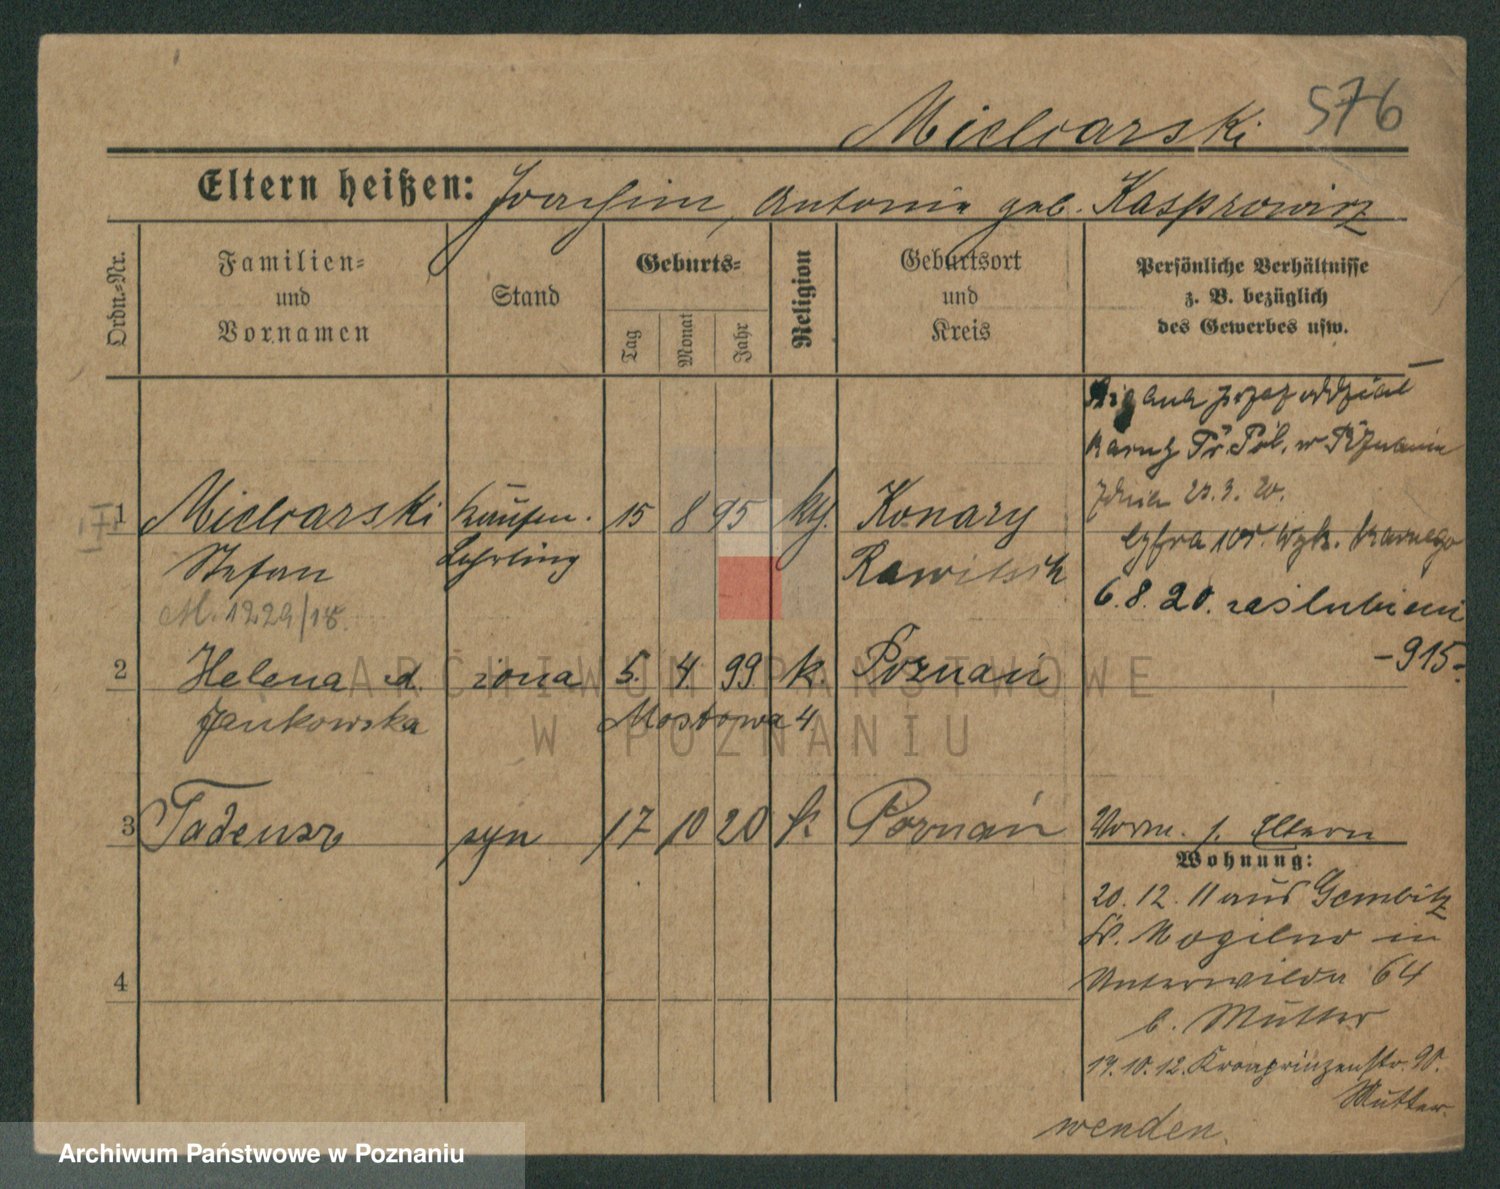 576
Mielcarski
Eltern heißen: Joachim, Antonie geb. Kasprowicz
Ordn.-Nr.
Familien-
und
Vornamen
Stand
Geburts-
Tag
Monat
Jahr
Religion
Geburtsort
und
Kreis
Persönliche Verhältnisse
z. B. bezüglich
des Gewerbes usw.
przez oddział
karny Pr. Pol. w Poznaniu
dnia 3. 20.
Cyfra Wyk. karnego
6.8.20. zaślubieni
-915-
1 Mielcarski Kaufm. 15 8 95 kg. Konary
Stefan Lehrling Rawitsch
M. 1229/18.
2 Helena d. żona 5. 4. 99 k. Poznań
Jankowska Mostowa 4
3 Tadeusz syn 17 10 20 k Poznań
Vorm. s. Eltern
Wohnung:
20.12.11 aus Gembitz
Kr. Mogilno in
Unterwilda 64
b. Mutter
17.10.12. Kronprinzenstr. 90.
Mutter.
4
wenden.
ARCHIWUM PAŃSTWOWE
W POZNANIU
Archiwum Państwowe w Poznaniu